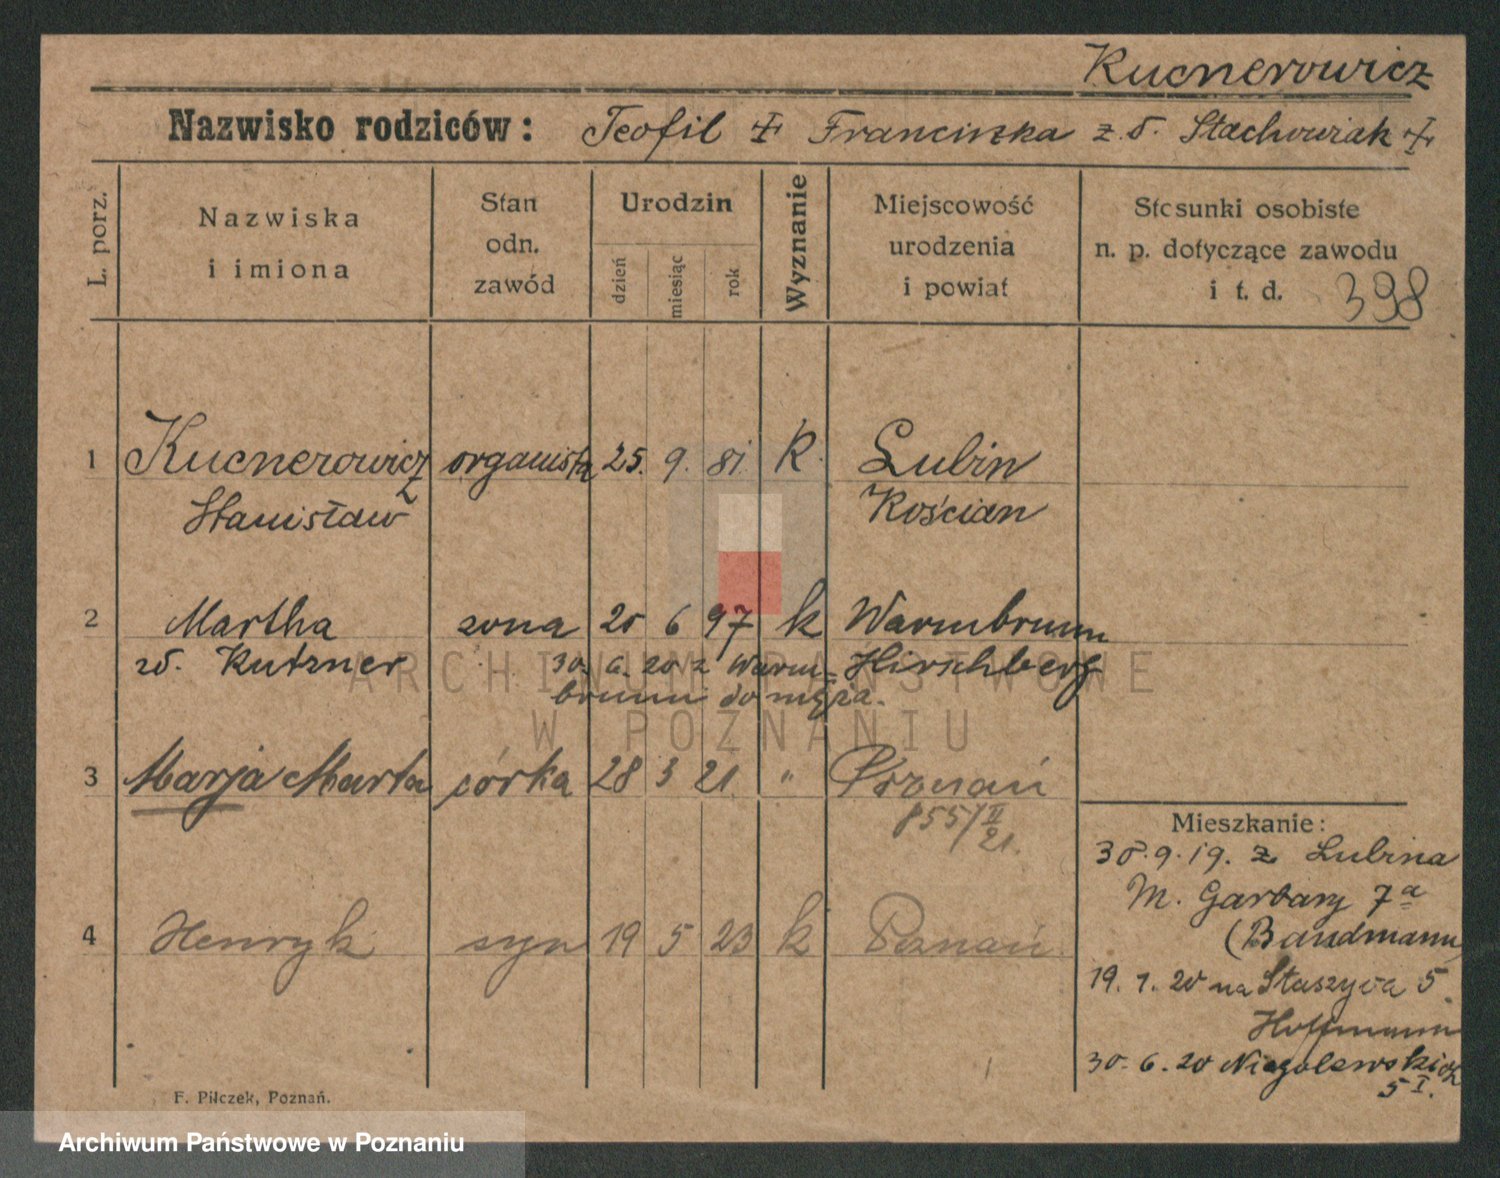 Kucnerowicz
Nazwisko rodziców: Teofil ‡ Franciszka z d. Stachowiak ‡
L. porz.
Nazwiska
i imiona
Stan
odn.
zawód
Urodzin
dzień
miesiąc
rok
Wyznanie
Miejscowość
urodzenia
i powiat
Stosunki osobiste
n. p. dotyczące zawodu
i t. d. 398
1 Kucnerowicz organista 25. 9. 81. K. Lubin
Stanisław Kościan
2 Martha zona 20 6 97 k Warmbrunn
zd. Kutzner 30. 6. 20 z Warm= Hirschberg
brunn do męża.
3 Marja Marta córka 28 3 21 " Poznań
855/II
21.
4 Henryk syn 19 5 23 k Poznań
Mieszkanie:
30.9.19. z Lubina
M. Garbary 7a
(Bandmann
19. 1. 20 na Staszyca 5.
Hoffmann
30. 6. 20 Niegolewskich
5 I.
F. Piłczek, Poznań.
ARCHIWUM PAŃSTWOWE
W POZNANIU
Archiwum Państwowe w Poznaniu